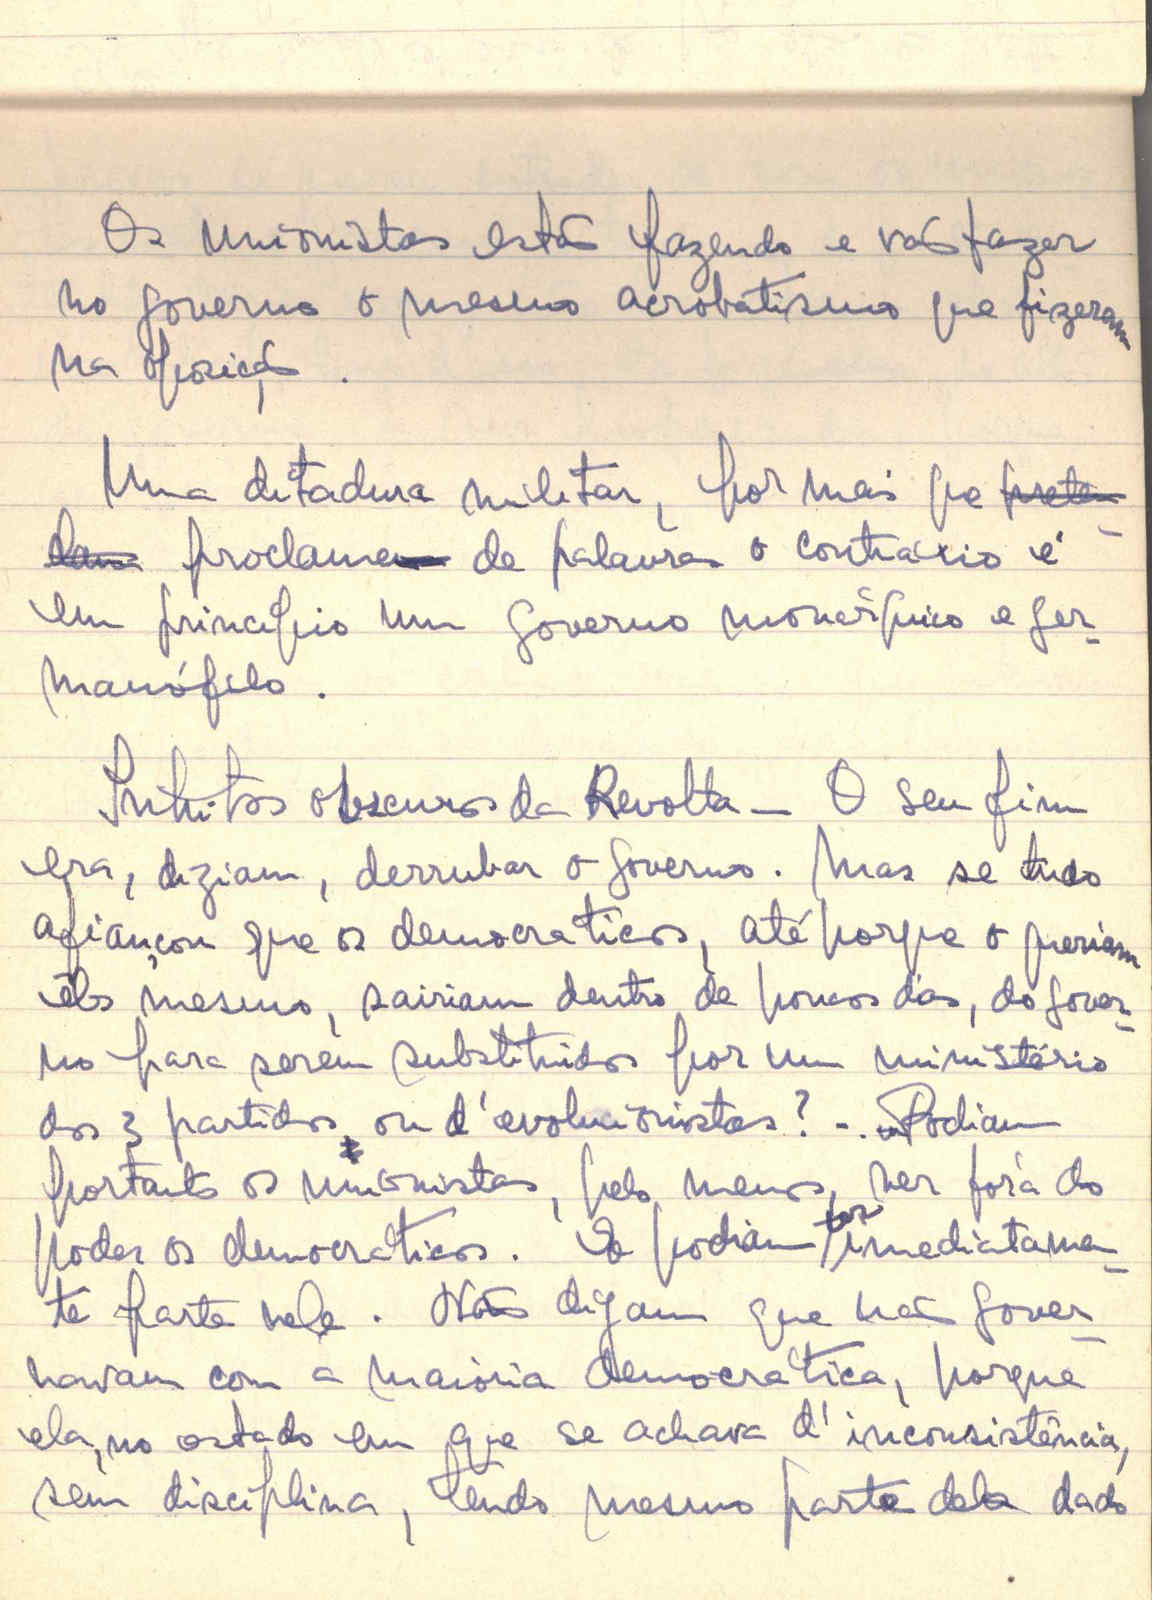 Os unionistas estão fazendo e vão fazer
no governo o mesmo acrobatismo que fizeram
na oposição.
Uma ditadura militar, por mais que preten-
dam proclame de palavras o contrário é
em princípio um governo monárquico e ger-
manófilo.
Intuitos obscuros da Revolta — O seu fim
era, diziam, derrubar o governo. Mas se tudo
afiançou que os democraticos, até porque o queriam
êles mesmo, sairiam dentro de poucos dias, do gover-
no para serem substituidos por um ministério
dos 3 partidos ou d'evolucionistas? -. Podiam
portanto os unionistas, pelo menos, ver fora do
poder os democraticos. E podiam ter imediatamen-
te parte nele. Não digam que não gover-
navam com a maioria democrática, porque
ela, no estado em que se achava d'inconsistência,
sem disciplina, tendo mesmo parte dela dado